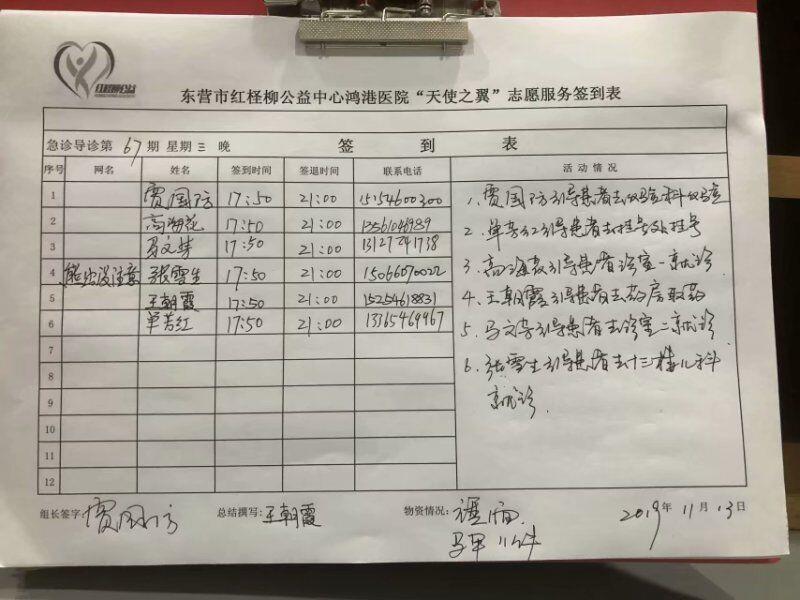 红柽柳公益
东营市红柽柳公益中心鸿港医院“天使之翼”志愿服务签到表
急诊导诊第 67 期 星期 三 晚 签 到 表
序号 网名 姓名 签到时间 签退时间 联系电话 活动情况
1 贾国防 17:50 21:00 15154600300
2 高海花 17:50 21:00 13561048989
3 马文芳 17:50 21:00 13127241738
4 熊出没注意 张雪生 17:50 21:00 15066070022
5 王朝霞 17:50 21:00 15254618831
6 单芳红 17:50 21:00 13365469967
7
8
9
10
11
12
1、贾国防引导患者去化验科化验
2、单芳红引导患者去挂号处挂号
3、高海花引导患者诊室一就诊
4、王朝霞引导患者去药房取药
5、马文芳引导患者去诊室二就诊
6、张雪生引导患者去十三楼儿科
就诊.
组长签字: 贾国防 总结撰写: 王朝霞 物资情况: 2019年 11月 13日
马甲 11件